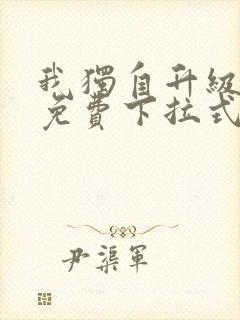 我獨自升級
免費下拉式
尹渠軍